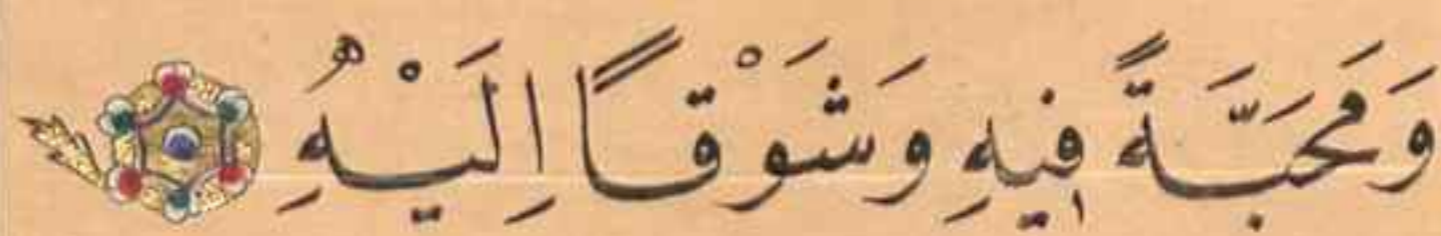 وَمَحَبَّةً فِيهِ وَشَوْقًا اِلَيْهِ